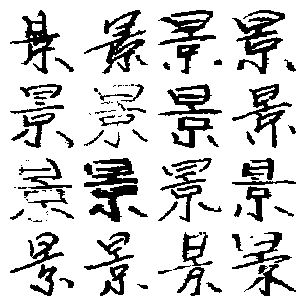 景景景景
景景景景
景景景景
景景景景